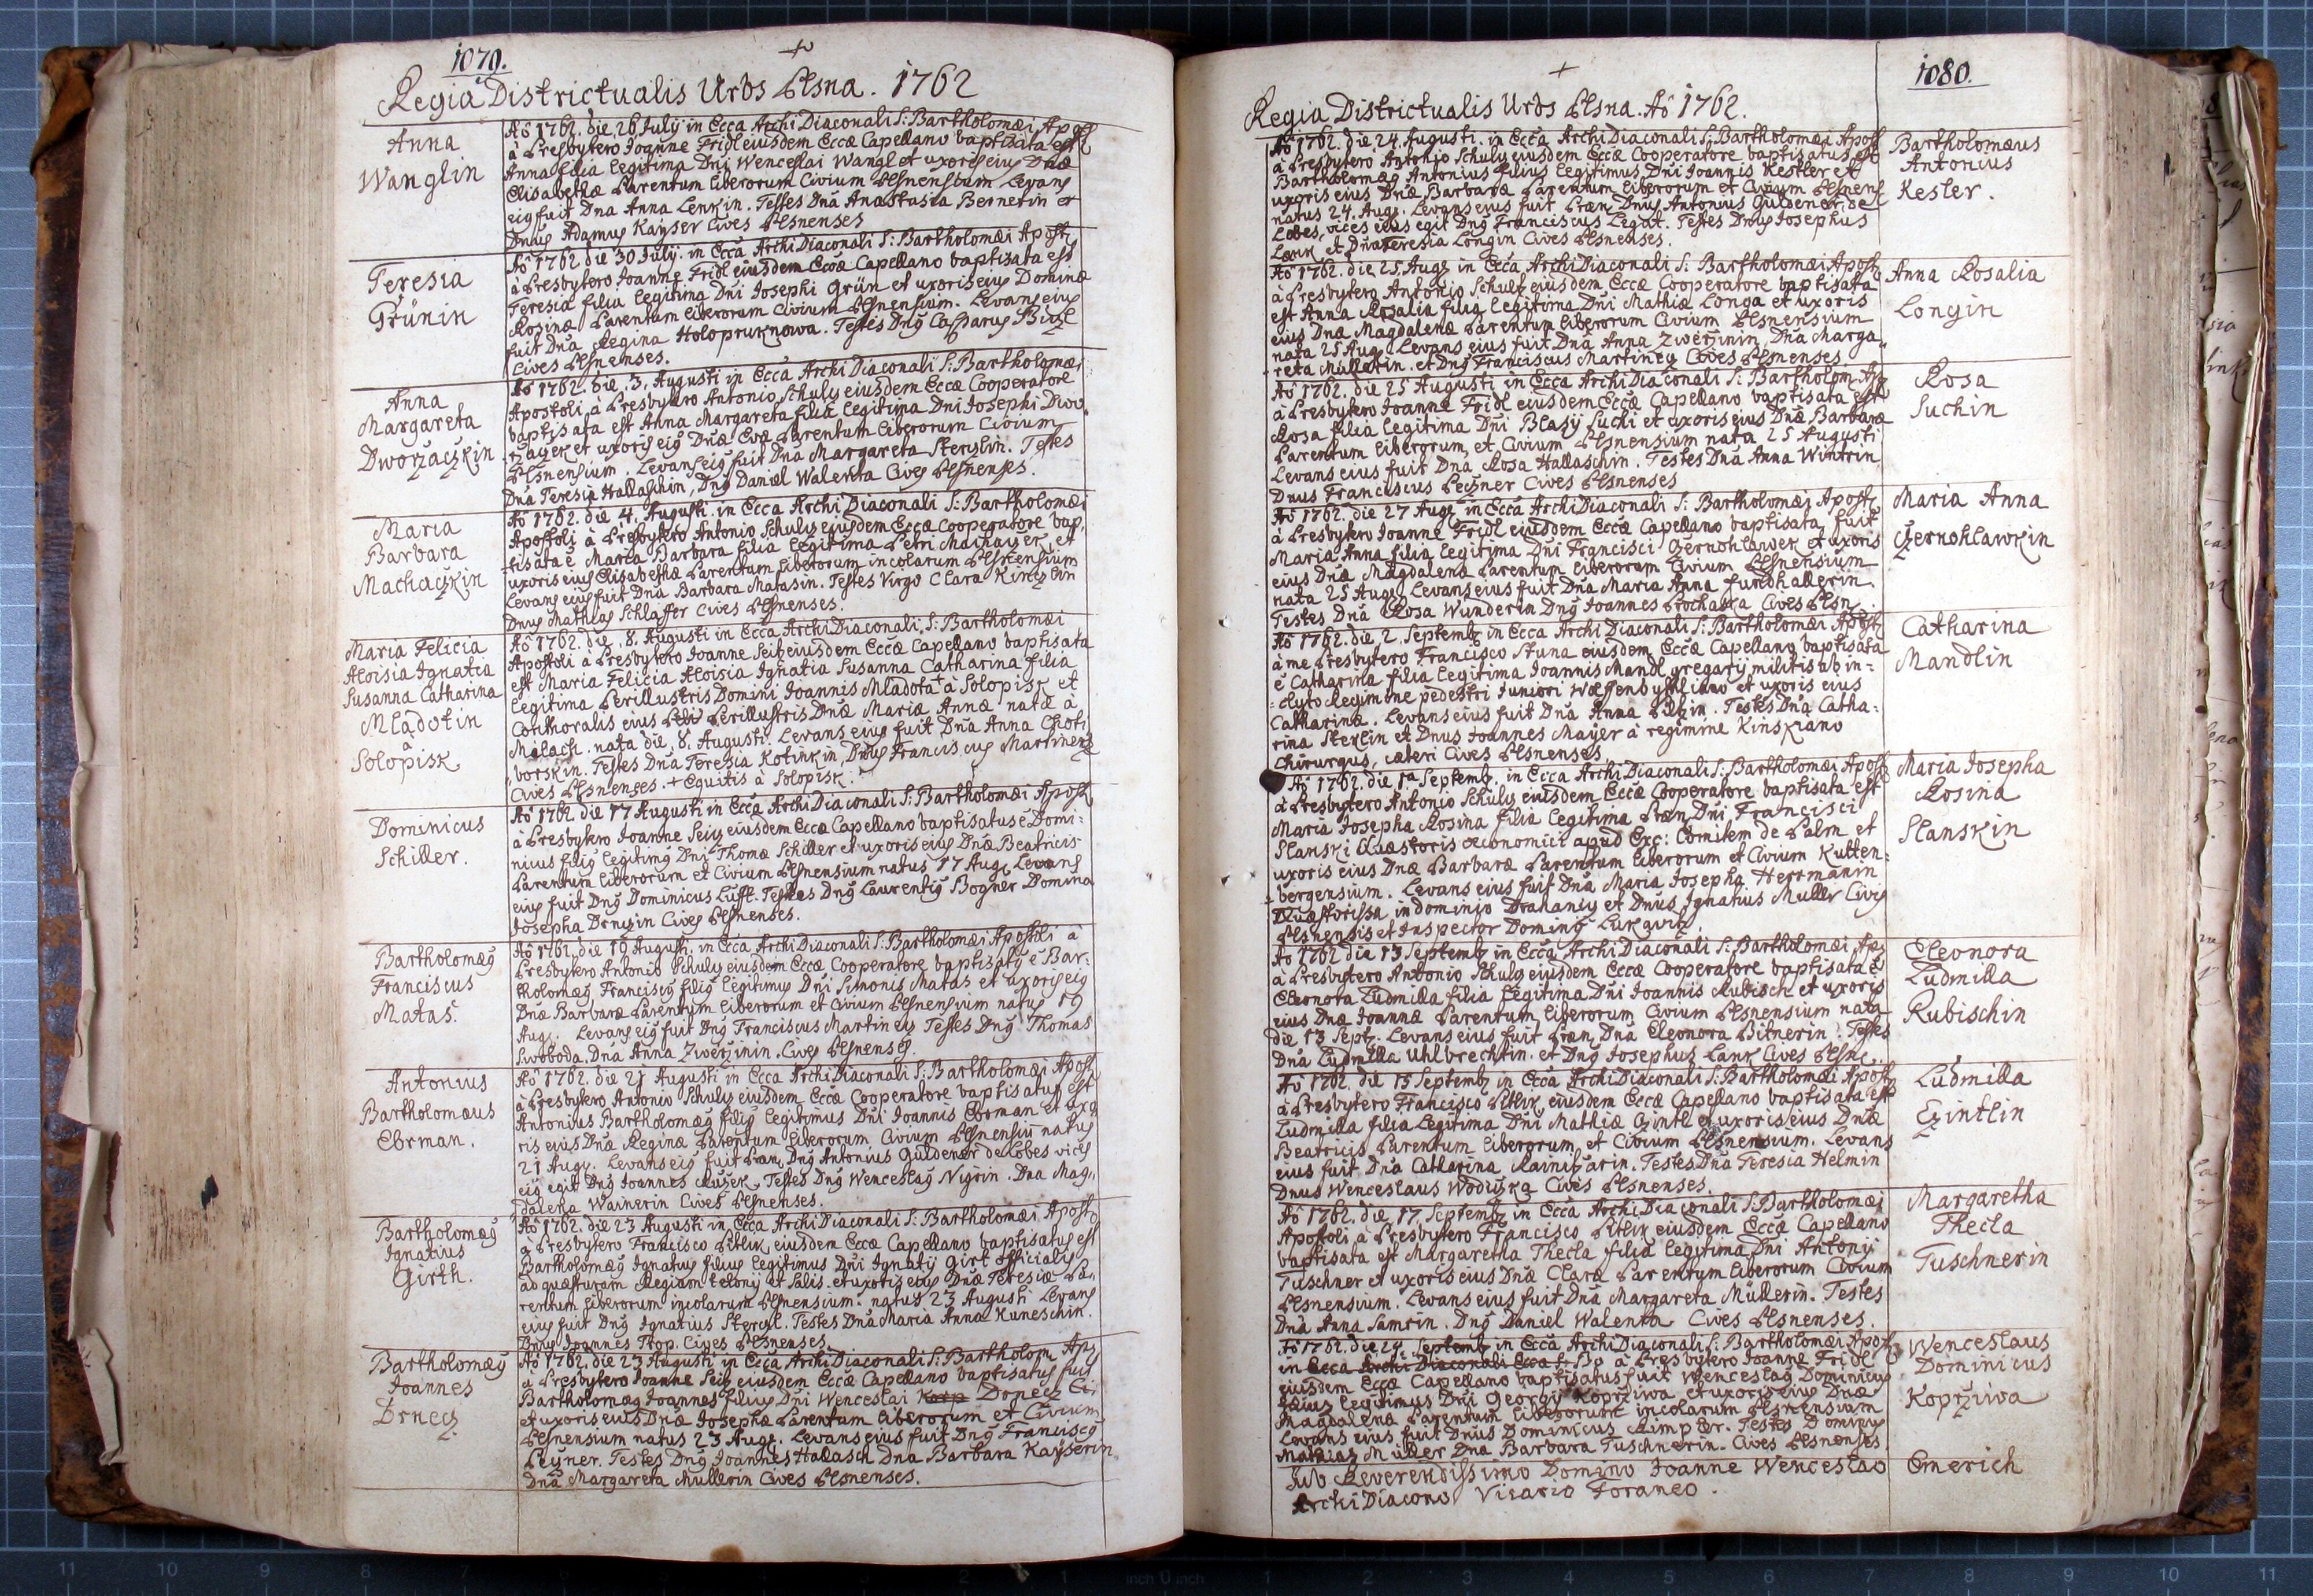 1079.
+
Regia Districtualis Urbs Plsna. 1762
Anna
Wanglin
Aô 1762. die 26 July in Ecca Archi Diaconali S: Bartholomæi Apost
à Presbytero Joanne Fridl eiusdem Eccæ Capellano baptisata est
Anna filia legitima Dni Wenceslai Wangl et uxoris eius Dnæ
Elisabethæ Parentum liberorum Civium Plsnensium Levans
eiq fuit Dna Anna Lenkin. Testes Dna Anastasia Bernetin et
Dnus Adamus Kayser Cives Plsnenses
Teresia
Grünin
Aô 1762 die 30 July. in Ecca Archi Diaconali S: Bartholomæi Apost
à Presbytero Joanne Fridl eiusdem Eccæ Capellano baptisata est
Teresia filia legitima Dni Josephi Grün et uxoris eius Dominæ
Rosinæ Parentum liberorum Civium Plsnensium. Levans eius
fuit Dna Regina Holopruknowa. Testis Dnq Casparus
Cives Plsnenses.
Anna
Margareta
Dworzaczkin
Aô 1762. die 3. Augusti in Ecca Archi Diaconali S: Bartholomæi
Apostoli à Presbytero Antonio Schulz eiusdem Eccæ Cooperatore
baptisata est Anna Margareta filia legitima Dni Josephi Dwo
rzaczek et uxoris eiq Dnæ Evæ Parentum liberorum Civium
Plsnensium. Levans eiq fuit Dna Margareta Sterzlin. Testes
Dna Teresia Hallaschin, Dnq Daniel Walenta Cives Plsnenses.
Maria
Barbara
Machaczkin
Aô 1762. die 4. Augusti. in Ecca Archi Diaconali S: Bartholomæi
Apostoli à Presbytero Antonio Schulz eiusdem Eccæ Cooperatore bap,
tisata ē Maria Barbara filia legitima Petri Machaczek, et
uxoris eius Elisabethæ Parentum liberorum incolarum Plsnensium
Levans eius fuit Dna Barbara Matasin. Testes Virgo Clara
Dnus Mathias Schlaffer Cives Plsnenses.
Maria Felicia
Aloisia Ignatia
Susanna Catharina
Mladotin
à
Solopisk
Aô 1762. die 8. Augusti in Ecca Archi Diaconali S: Bartholomæi
Apostoli à Presbytero Joanne Seitz eiusdem Eccæ Capellano baptisata
est Maria Felicia Aloisia Ignatia Susanna Catharina filia
legitima Perillustris Domini Joannis Mladota + à Solopisk et
Conthoralis eius Perillustris Dnæ Mariæ Annæ natæ à
Malach. nata die 8. Augusti. Levans eius fuit Dna Anna Choti,
borskin. Testes Dna Teresia Kotinkin, Dnus Franciscus Martinetz
Cives Plsnenses. + Equitis à Solopisk.
Dominicus
Schiller.
Aô 1762. die 17 Augusti in Ecca Archi Diaconali S: Bartholomæi Apost
à Presbytero Joanne Seitz eiusdem Eccæ Capellano baptisatus ē Domi:
nicus filiq legitimq Dni Thomæ Schiller et uxoris eiq Dnæ Beatricis
Parentum liberorum et Civium Plsnensium natus 17 Aug. Levans
eiq fuit Dnq Dominicus Luft. Testes Dnq Laurentiq Bogner Domina
Josepha Drnzin Cives Plsnenses.
Bartholomæq
Franciscus
Matas.
Aô 1762. die 19 Augusti. in Ecca Archi Diaconali S: Bartholomæi Apostoli à
Presbytero Antonio Schulz eiusdem Eccæ Cooperatore baptisatq ē Bar:
tholomæq Franciscq filiq legitimus Dni Simonis Matas et uxoris eiq
Dnæ Barbaræ Parentum liberorum et Civium Plsnensium natus 19
Aug. Levans eiq fuit Dnq Franciscus Martinetz Testes Dnq Thomas
Swoboda. Dna Anna Zwerzinin. Cives Plsnenses.
Antonius
Bartholomæus
Ebrman.
Aô 1762. die 21 Augusti in Ecca Archi Diaconali S: Bartholomæi Apost
à Presbytero Antonio Schulz eiusdem Eccæ Cooperatore baptisatus est
Antonius Bartholomæq filiq legitimus Dni Joannis Ebrman et uxo
ris eius Dnæ Reginæ Parentum liberorum Civium Plsnensiū natus
21 Aug. Levans eiq fuit Præn, Dnq Antonius Güldener de Lobes vices
eiq egit Dnq Joannes Ružek. Testes Dnq Wenceslaq Nigrin. Dna Mag,,
dalena Wainerin Cives Plsnenses.
Bartholomæq
Ignatius
Girth.
Aô 1762. die 23 Augusti in Ecca Archi Diaconali S: Bartholomæi Apost
à Presbytero Francisco Pitlik eiusdem Eccæ Capellano baptisatus est
Bartholomæq Ignatius filius legitimus Dni Ignatij Girt officialis
ad quæsturam Regiam telonij et Salis. et uxoris eius Dnæ Teresiæ Pa,
rentum liberorum incolarum Plsnensium. natus 23 Augusti Levans
eiq fuit Dnq Ignatius Sterzl. Testes Dna Maria Anna Kuneschin.
Dnus Joannes Prop. Cives Plsnenses
Bartholomæq
Joannes
Drnecz
Aô 1762. die 23 Augusti in Ecca Archi Diaconali S: Bartholom. Aps
à Presbytero Joanne Seitz eiusdem Eccæ Capellano baptisatus fuit
Bartholomæq Joannes filius Dni Wenceslai Donecz
et uxoris eius Dnæ Josephæ Parentum liberorum et Civium
Plsnensium natus 23 Aug. Levans eius fuit Dnq Franciscq
Peyner. Testes Dnq Joannes Hallasch Dna Barbara Kayserin
Dna Margareta Mullerin Cives Plsnenses.
+
1080.
Regia Districtualis Urbs Plsna. Aô 1762.
Aô 1762. die 24. Augusti. in Ecca Archi Diaconali S: Bartholomæi Apost
à Presbytero Antonio Schulz eiusdem Eccæ Cooperatore baptisatus est
Bartholomæq Antonius filius legitimus Dni Joannis Kestler et
uxoris eius Dnæ Barbaræ Parentum liberorum et Civium Plsnens
natus 24. Aug. Levans eius fuit Præn. Dnus Antonius Güldener de
Lobes, vices eius egit Dnq Franciscus Legat. Testes Dnus Josephus
Lank et Dna Teresia Longin Cives Plsnenses.
Bartholomæus
Antonius
Kesler.
Aô 1762. die 25 Aug. in Ecca Archi Diaconali S: Bartholomæi Apost
à Presbytero Antonio Schulz eiusdem Eccæ Cooperatore baptisata
est Anna Rosalia filia legitima Dni Mathiæ Longa et uxoris
eius Dnæ Magdalenæ Parentum liberorum Civium Plsnensium
nata 25 Aug. Levans eius fuit Dna Anna Zwerzinin, Dna Marga,,
reta Mullerin. et Dnq Franciscus Martinetz Cives Plsnenses
Anna Rosalia
Longin
Aô 1762. die 25 Augusti in Ecca Archi Diaconali S: Bartholom. Ap
à Presbytero Joanne Fridl eiusdem Eccæ Capellano baptisata est
Rosa filia legitima Dni Blasij Suchi et uxoris eius Dnæ Barbaræ
Parentum liberorum et Civium Plsnensium nata 25 Augusti
Levans eius fuit Dna Rosa Hallaschin. Testes Dna Anna Wintrin
Dnus Franciscus Peczner Cives Plsnenses
Rosa
Suchin
Aô 1762. die 27 Aug. in Ecca Archi Diaconali S: Bartholomæi Apost
à Presbytero Joanne Fridl eiusdem Eccæ Capellano baptisata fuit
Maria Anna filia legitima Dni Francisci Czernohlawek et uxoris
eius Dnæ Magdalenæ Parentum liberorum Civium Plsnensium
nata 25 Aug. Levans eius fuit Dna Maria Anna Fundhallerin.
Testes Dna Rosa Wunderin Dnq Joannes Prochaska Cives Plsn
Maria Anna
Czernohlawkin
Aô 1762. die 2. Septemb in Ecca Archi Diaconali S: Bartholomæi Apost
à me Presbytero Francisco Stuna eiusdem Eccæ Capellano baptisata
ē Catharina filia legitima Joannis Mandl gregarij militis ab in=
=clyto Regimine pedestri Juniori Wolffenbyttliano et uxoris eius
Catharinæ. Levans eius fuit Dna Anna. Testes Dna Catha=
rina Sterzlin et Dnus Joannes Mayer à regimine Kinskiano
Chirurgus, cæteri Cives Plsnenses.
Catharina
Mandlin
Aô 1762. die 1ª Septemb. in Ecca Archi Diaconali S: Bartholomæi Apost
à Presbytero Antonio Schulz eiusdem Eccæ Cooperatore baptisata est
Maria Josepha Rosina filia legitima Præn. Dni Francisci
Slanski Quæstoris œconomici apud Exc: Comitem de Palm et
uxoris eius Dnæ Barbaræ Parentum liberorum et Civium Kutten=
bergensium. Levans eius fuit Dna Maria Josepha Herrmanin
Quæstorissa in dominio Drahanitz et Dnus Ignatius Muller Civis
Plsnensis et Inspector Dominij Lukavitz.
Maria Josepha
Rosina
Slanskin
Aô 1762 die 13 Septemb in Ecca Archi Diaconali S: Bartholomæi Ap
à Presbytero Antonio Schulz eiusdem Eccæ Cooperatore baptisata ē
Eleonora Ludmilla filia legitima Dni Joannis Rubisch et uxoris
eius Dnæ Joannæ Parentum liberorum Civium Plsnensium nata
die 13 Sept. Levans eius fuit Præn. Dna Eleonora Bitnerin. Testes
Dna Ludmilla Uhlbrechtin. et Dnq Josephus Lank Cives Plsne
Eleonora
Ludmilla
Rubischin
Aô 1762. die 15 Septemb in Ecca Archi Diaconali S: Bartholomæi Apost
à Presbytero Francisco Pitlik eiusdem Eccæ Capellano baptisata est
Ludmilla filia legitima Dni Mathiæ Czintl et uxoris eius Dnæ
Beatricis Parentum liberorum et Civium Plsnensium. Levans
eius fuit Dna Catharina Rainisarin. Testes Dna Teresia Helmin
Dnus Wenceslaus Wodiczka Cives Plsnenses.
Ludmilla
Czintlin
Aô 1762. die 17. Septemb in Ecca Archi Diaconali S: Bartholomæi
Apostoli à Presbytero Francisco Pitlik eiusdem Eccæ Capellano
baptisata est Margaretha Thecla filia legitima Dni Antonij
Tuschner et uxoris eius Dnæ Claræ Parentum liberorum Civium
Plsnensium. Levans eius fuit Dna Margareta Müllerin. Testes
Dna Anna Samrin. Dnq Daniel Walenta Cives Plsnenses.
Margaretha
Thecla
Tuschnerin
Aô 1762. die 24. Septemb in Ecca Archi Diaconali S: Bartholomæi Apost
in Ecca Archi Diaconali Ecca S: Ba à Presbytero Joanne Fridl
eiusdem Eccæ Capellano baptisatus fuit Wenceslaq Dominicus
filius legitimus Dni Georgij Koprziwa et uxoris eius Dnæ
Magdalena Parentum liberorum incolarum Plsnensium
Levans eius fuit Dnus Dominicus Rimpler. Testes Dominus
Mathias Müller Dna Barbara Tuschnerin. Cives Plsnenses
Wenceslaus
Dominicus
Koprziwa
Sub Reverendissimo Domino Joanne Wenceslao Emerich
Archi Diacono Vicario Foraneo.